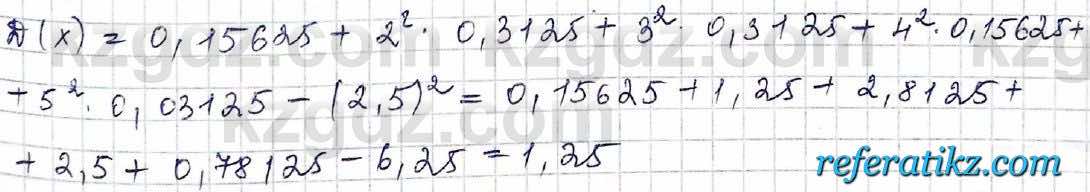 D(x) = 0,15625 + 2² · 0,3125 + 3² · 0,3125 + 4² · 0,15625 +
+ 5² · 0,03125 - (2,5)² = 0,15625 + 1,25 + 2,8125 +
+ 2,5 + 0,78125 - 6,25 = 1,25
kzgdz.com
referatikz.com